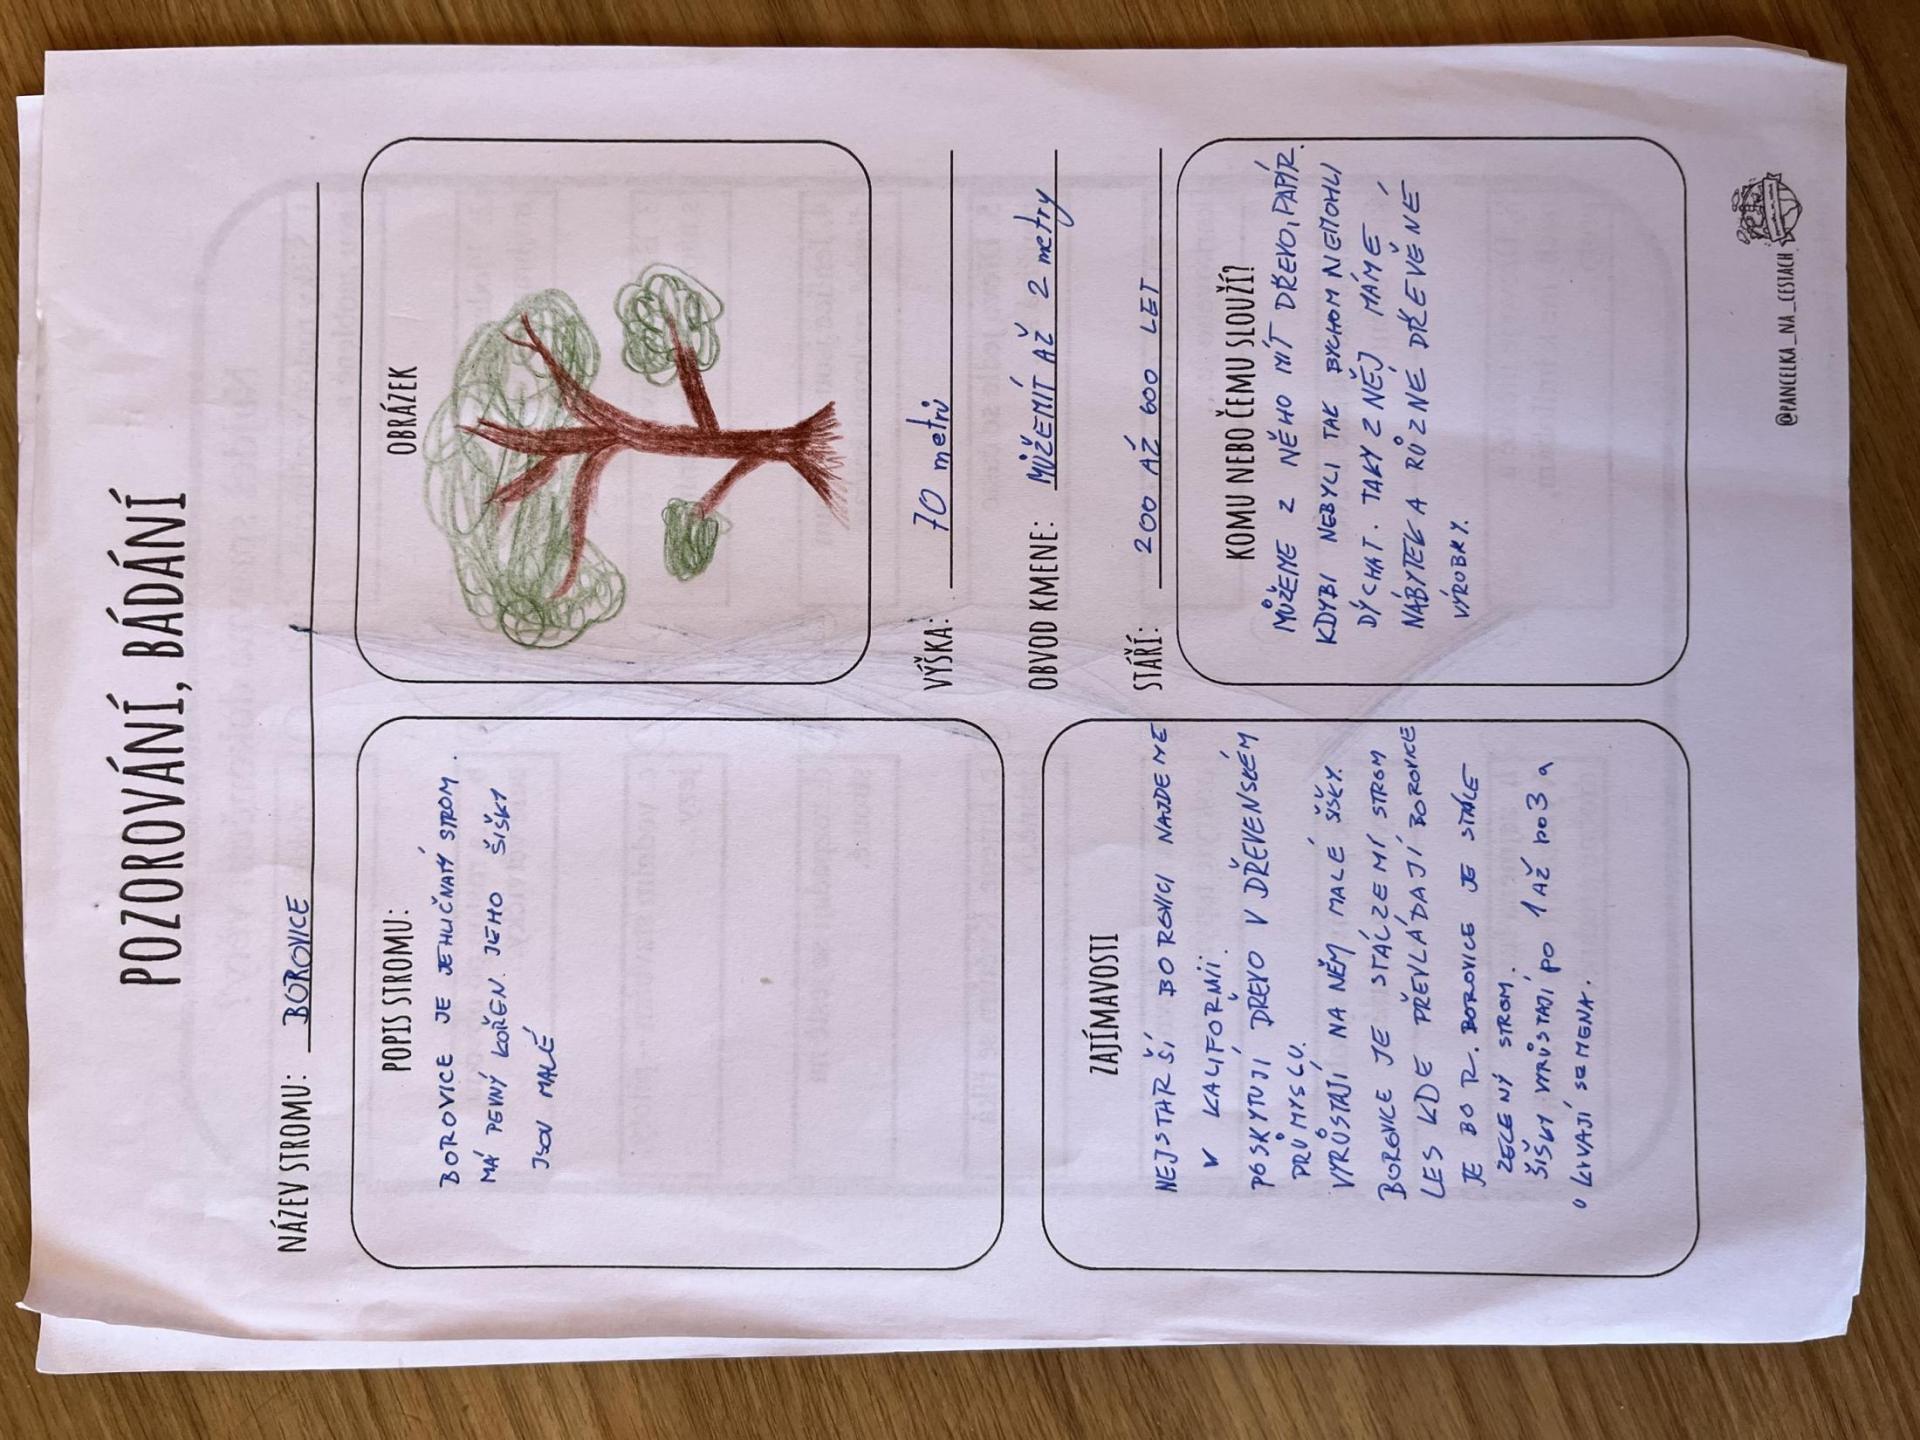 POZOROVÁNÍ, BÁDÁNÍ
NÁZEV STROMU: BOROVICE
POPIS STROMU:
BOROVICE JE JEHUČNATÝ STROM.
MÁ PEVNÝ KOŘEN. JEHO ŠIŠKY
JSOU MALÉ
OBRÁZEK
VÝŠKA: 70 metrů
OBVOD KMENE: MŮŽEMÍT AŽ 2 metry
STÁŘÍ: 200 AŽ 600 LET
ZAJÍMAVOSTI
NEJSTARŠÍ BOROVICI NAJDEME
V KALIFORNII.
POSKYTUJÍ DŘEVO V DŘEVENSKÉM
PRŮMYSLU.
VYRŮSTAJÍ NA NĚM MALÉ ŠIŠKY.
BOROVICE JE STÁLZEMÍ STROM
LES KDE PŘEVLÁDAJÍ BOROVICE
JE BOR. BOROVICE JE STÁLE
ZELENÝ STROM.
ŠIŠKY VYRŮSTAJÍ PO 1 AŽ DO 3 a
UKIVAJÍ SEMENA.
KOMU NEBO ČEMU SLOUŽÍ?
MŮŽEME Z NĚHO MÍT DŘEVO, PAPÍR.
KDYBI NEBYLI TAK BYCHOM NEMOHLI
DÝCHAT. TAKY Z NĚJ MÁME
NÁBYTEK A RŮZNÉ DŘEVĚNÉ
VÝROBKY.
@PANCELKA_NA_CESTACH